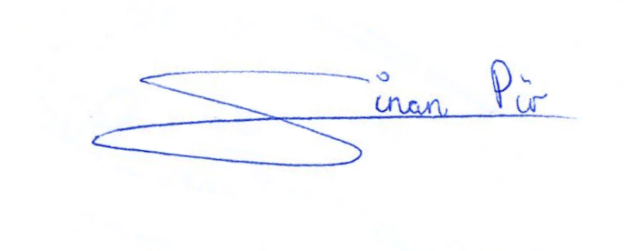 Sinan Pir